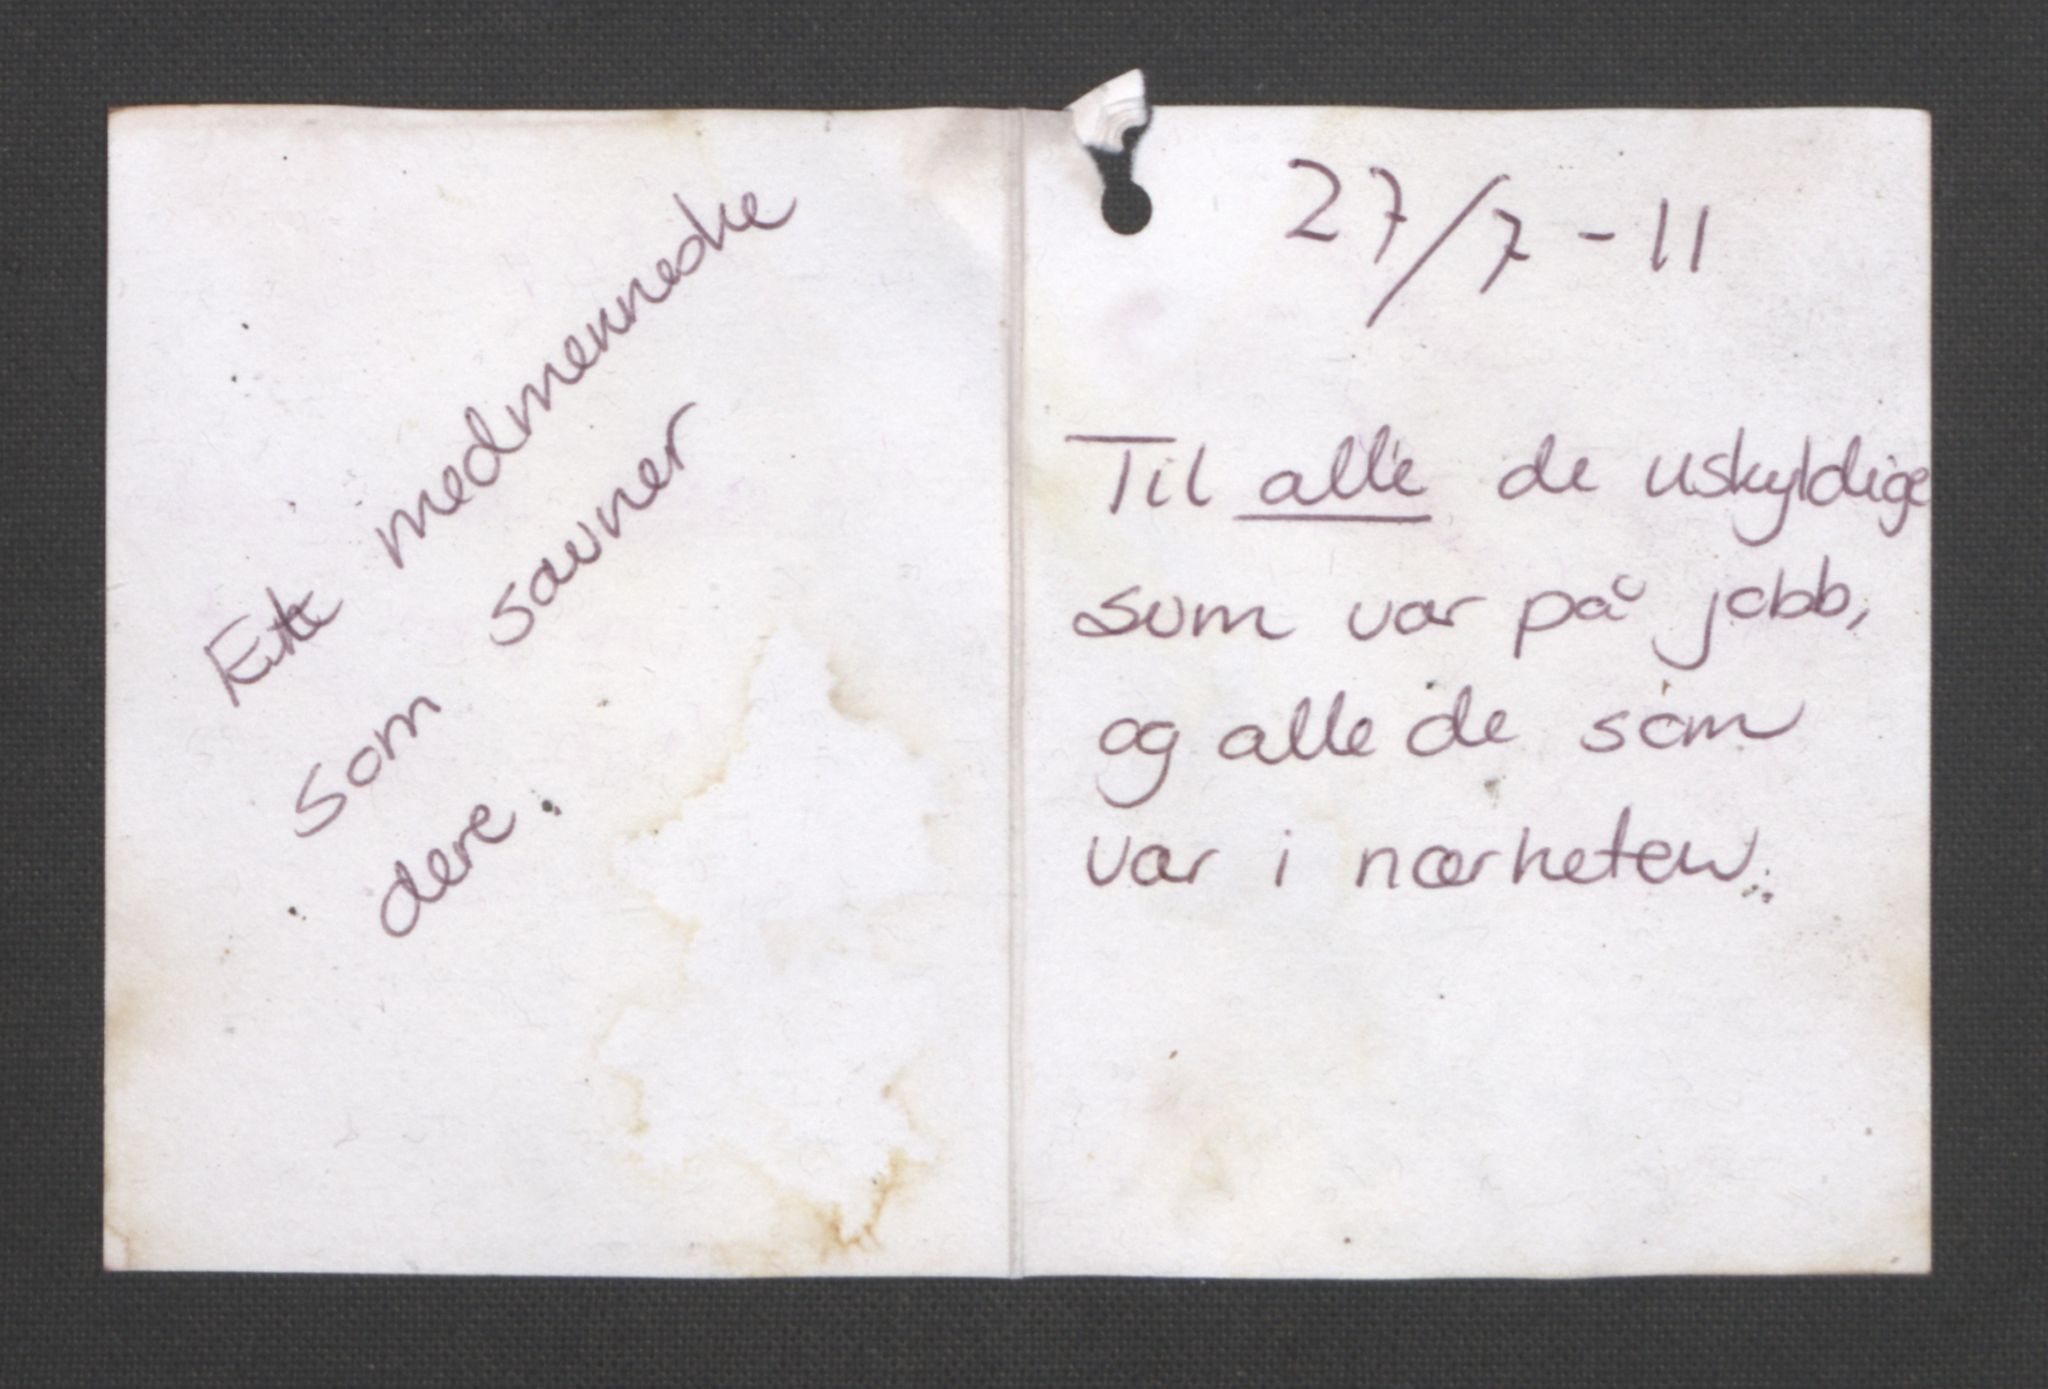 Ett medmenneske
som savner
dere.
27/7-11
Til alle de uskyldige
som var på jobb,
og alle de som
var i nærheten.